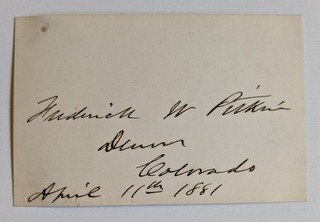 Frederick W Pitkin
Denver
Colorado
April 11th 1881